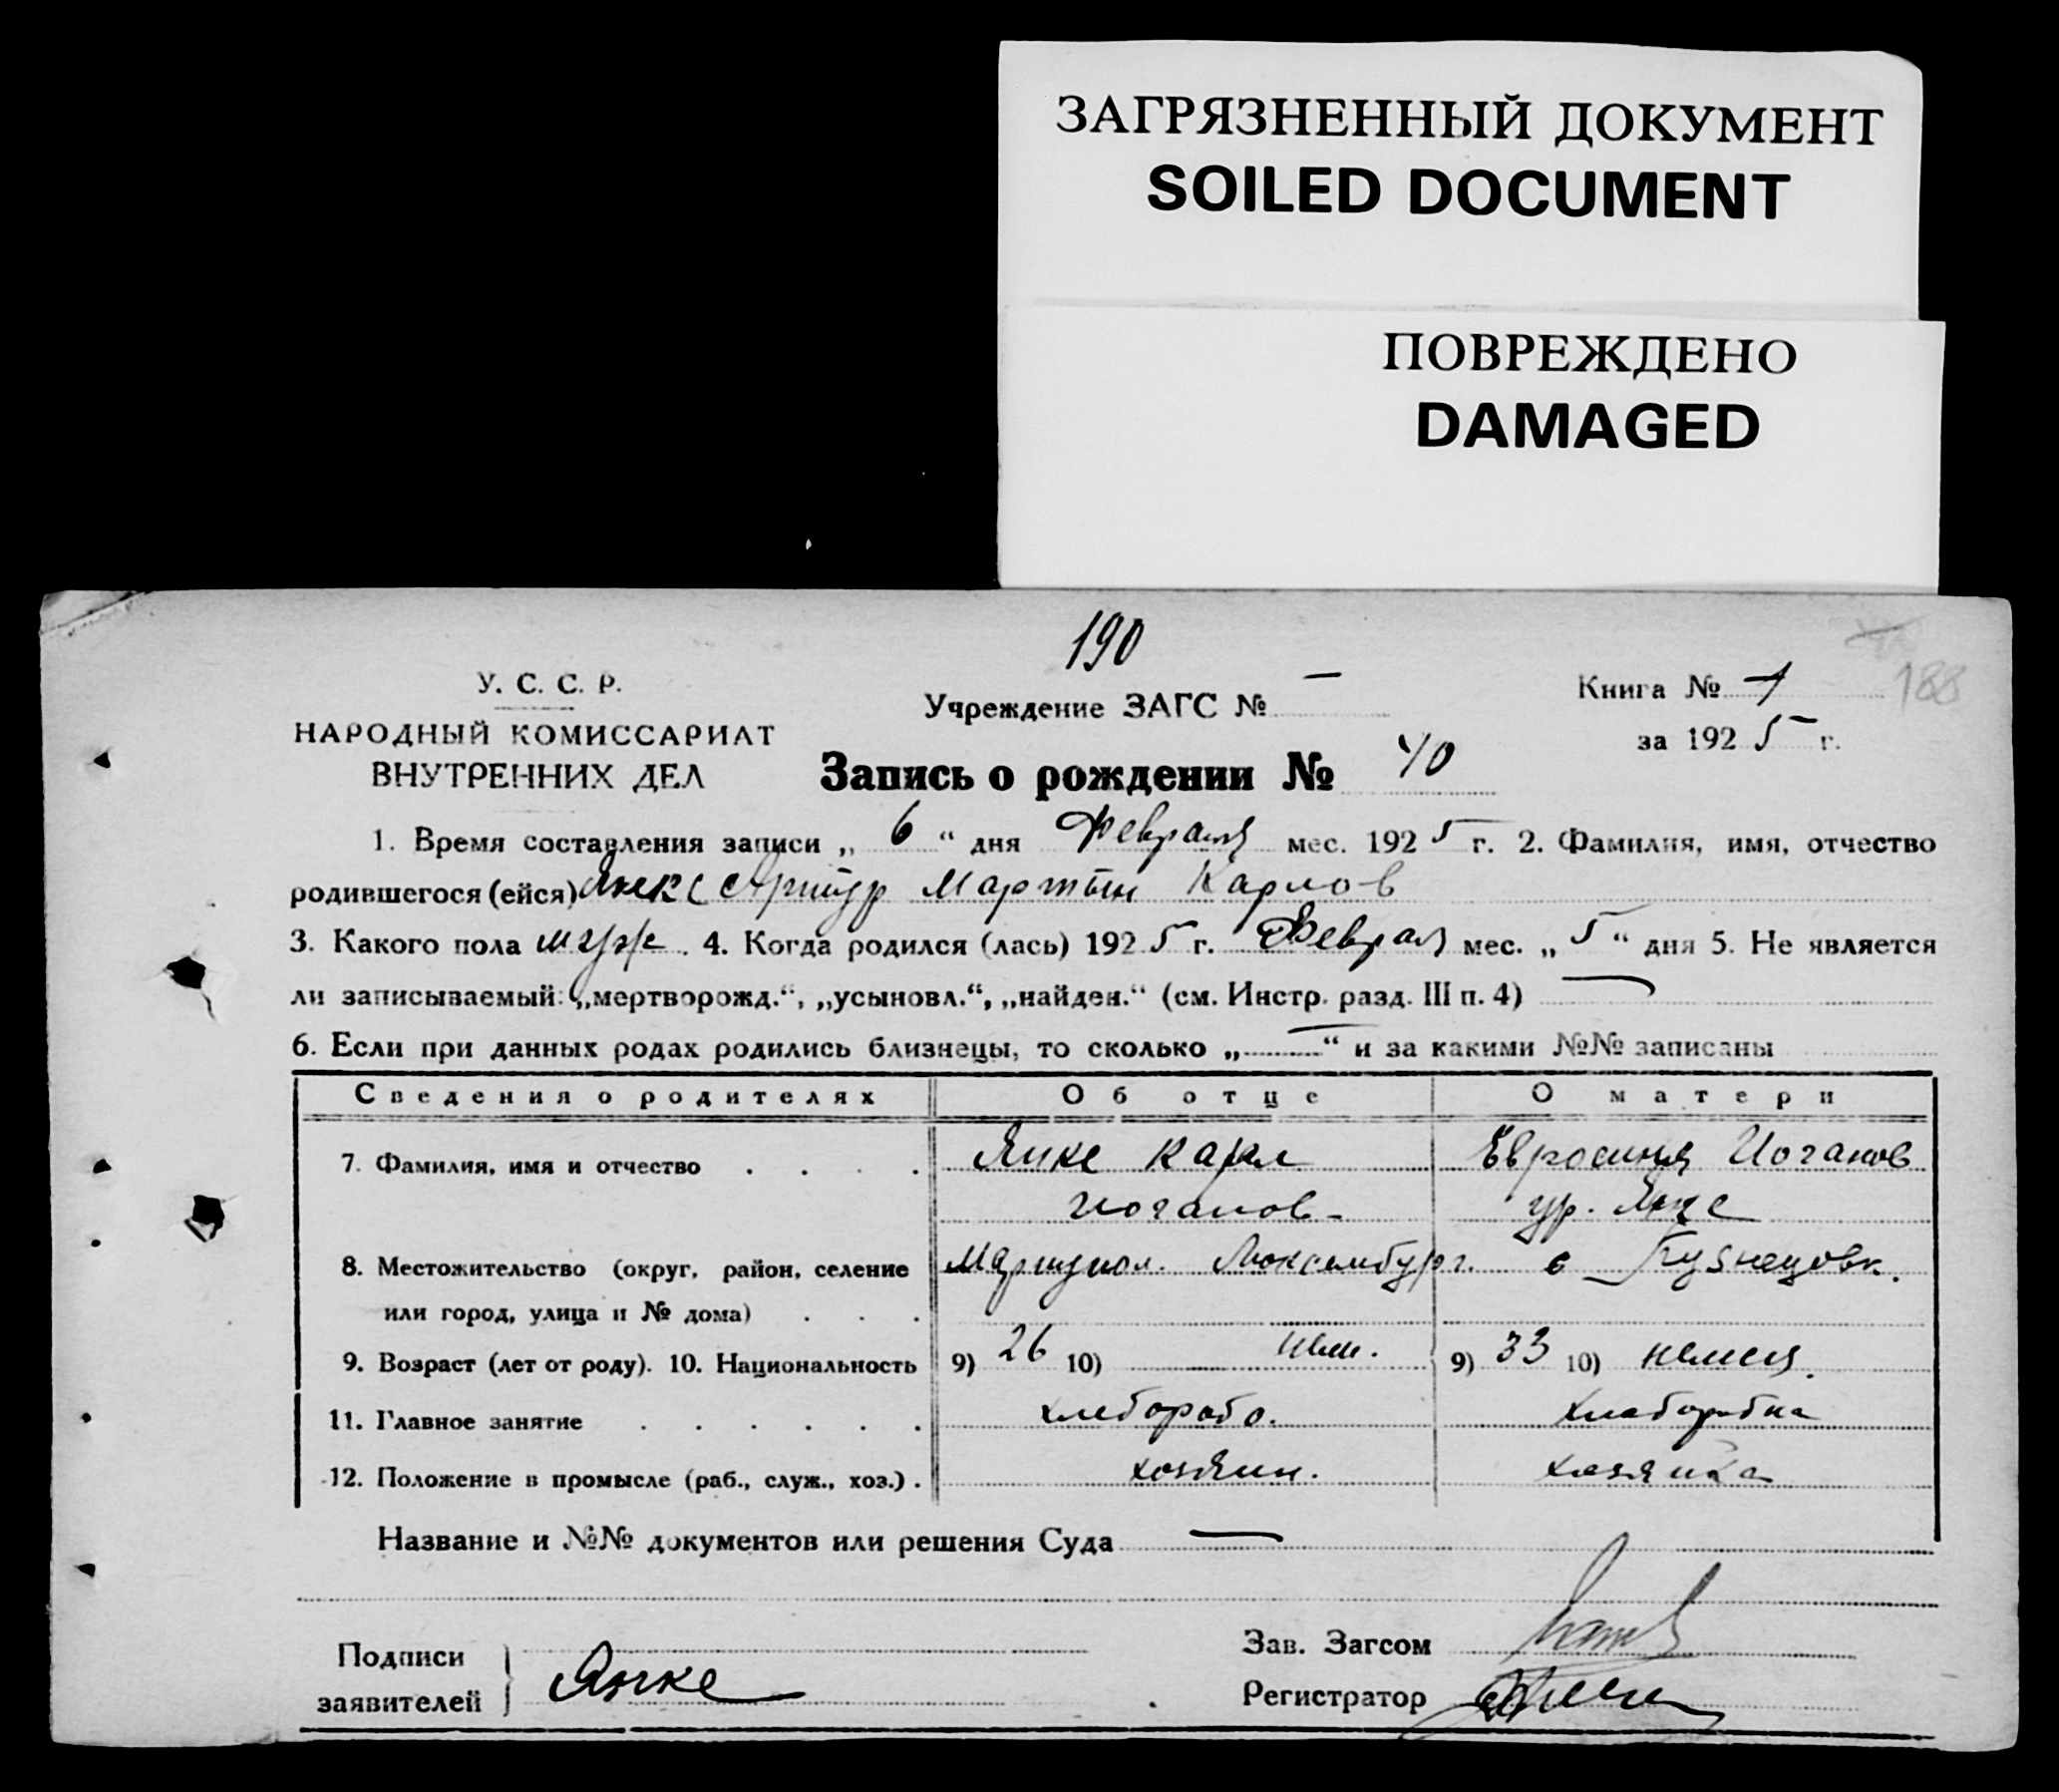 ЗАГРЯЗНЕННЫЙ ДОКУМЕНТ
SOILED DOCUMENT
ПОВРЕЖДЕНО
DAMAGED
190
188
У. С. С. Р.
НАРОДНЫЙ КОМИССАРИАТ
ВНУТРЕННИХ ДЕЛ
Учреждение ЗАГС № —
Книга № 1
за 1925 г.
Запись о рождении № 40
1. Время составления записи „ 6 “ дня Февраля мес. 1925 г. 2. Фамилия, имя, отчество
родившегося (ейся) Янке Артур Мартын Карлов
3. Какого пола муж. 4. Когда родился (лась) 1925 г. Феврал мес. „ 5 “ дня 5. Не является
ли записываемый: „мертворожд.“, „усыновл.“, „найден.“ (см. Инстр. разд. III п. 4) —
6. Если при данных родах родились близнецы, то сколько „ — “ и за какими №№ записаны
Сведения о родителях Об отце О матери
7. Фамилия, имя и отчество . . . . Янке Карл Евросиния Иоганов
Иоганов- ур. Янке
8. Местожительство (округ, район, селение Мариупол. Люксембург. с Кузнецовк.
или город, улица и № дома) . . .
9. Возраст (лет от роду). 10. Национальность 9) 26 10) нем. 9) 33 10) немец.
11. Главное занятие . . . . . . хлебороб. хлеборобка
12. Положение в промысле (раб., служ., хоз.) . хозяин. хозяйка
Название и №№ документов или решения Суда —
Подписи
заявителей } Янке
Зав. Загсом
Регистратор